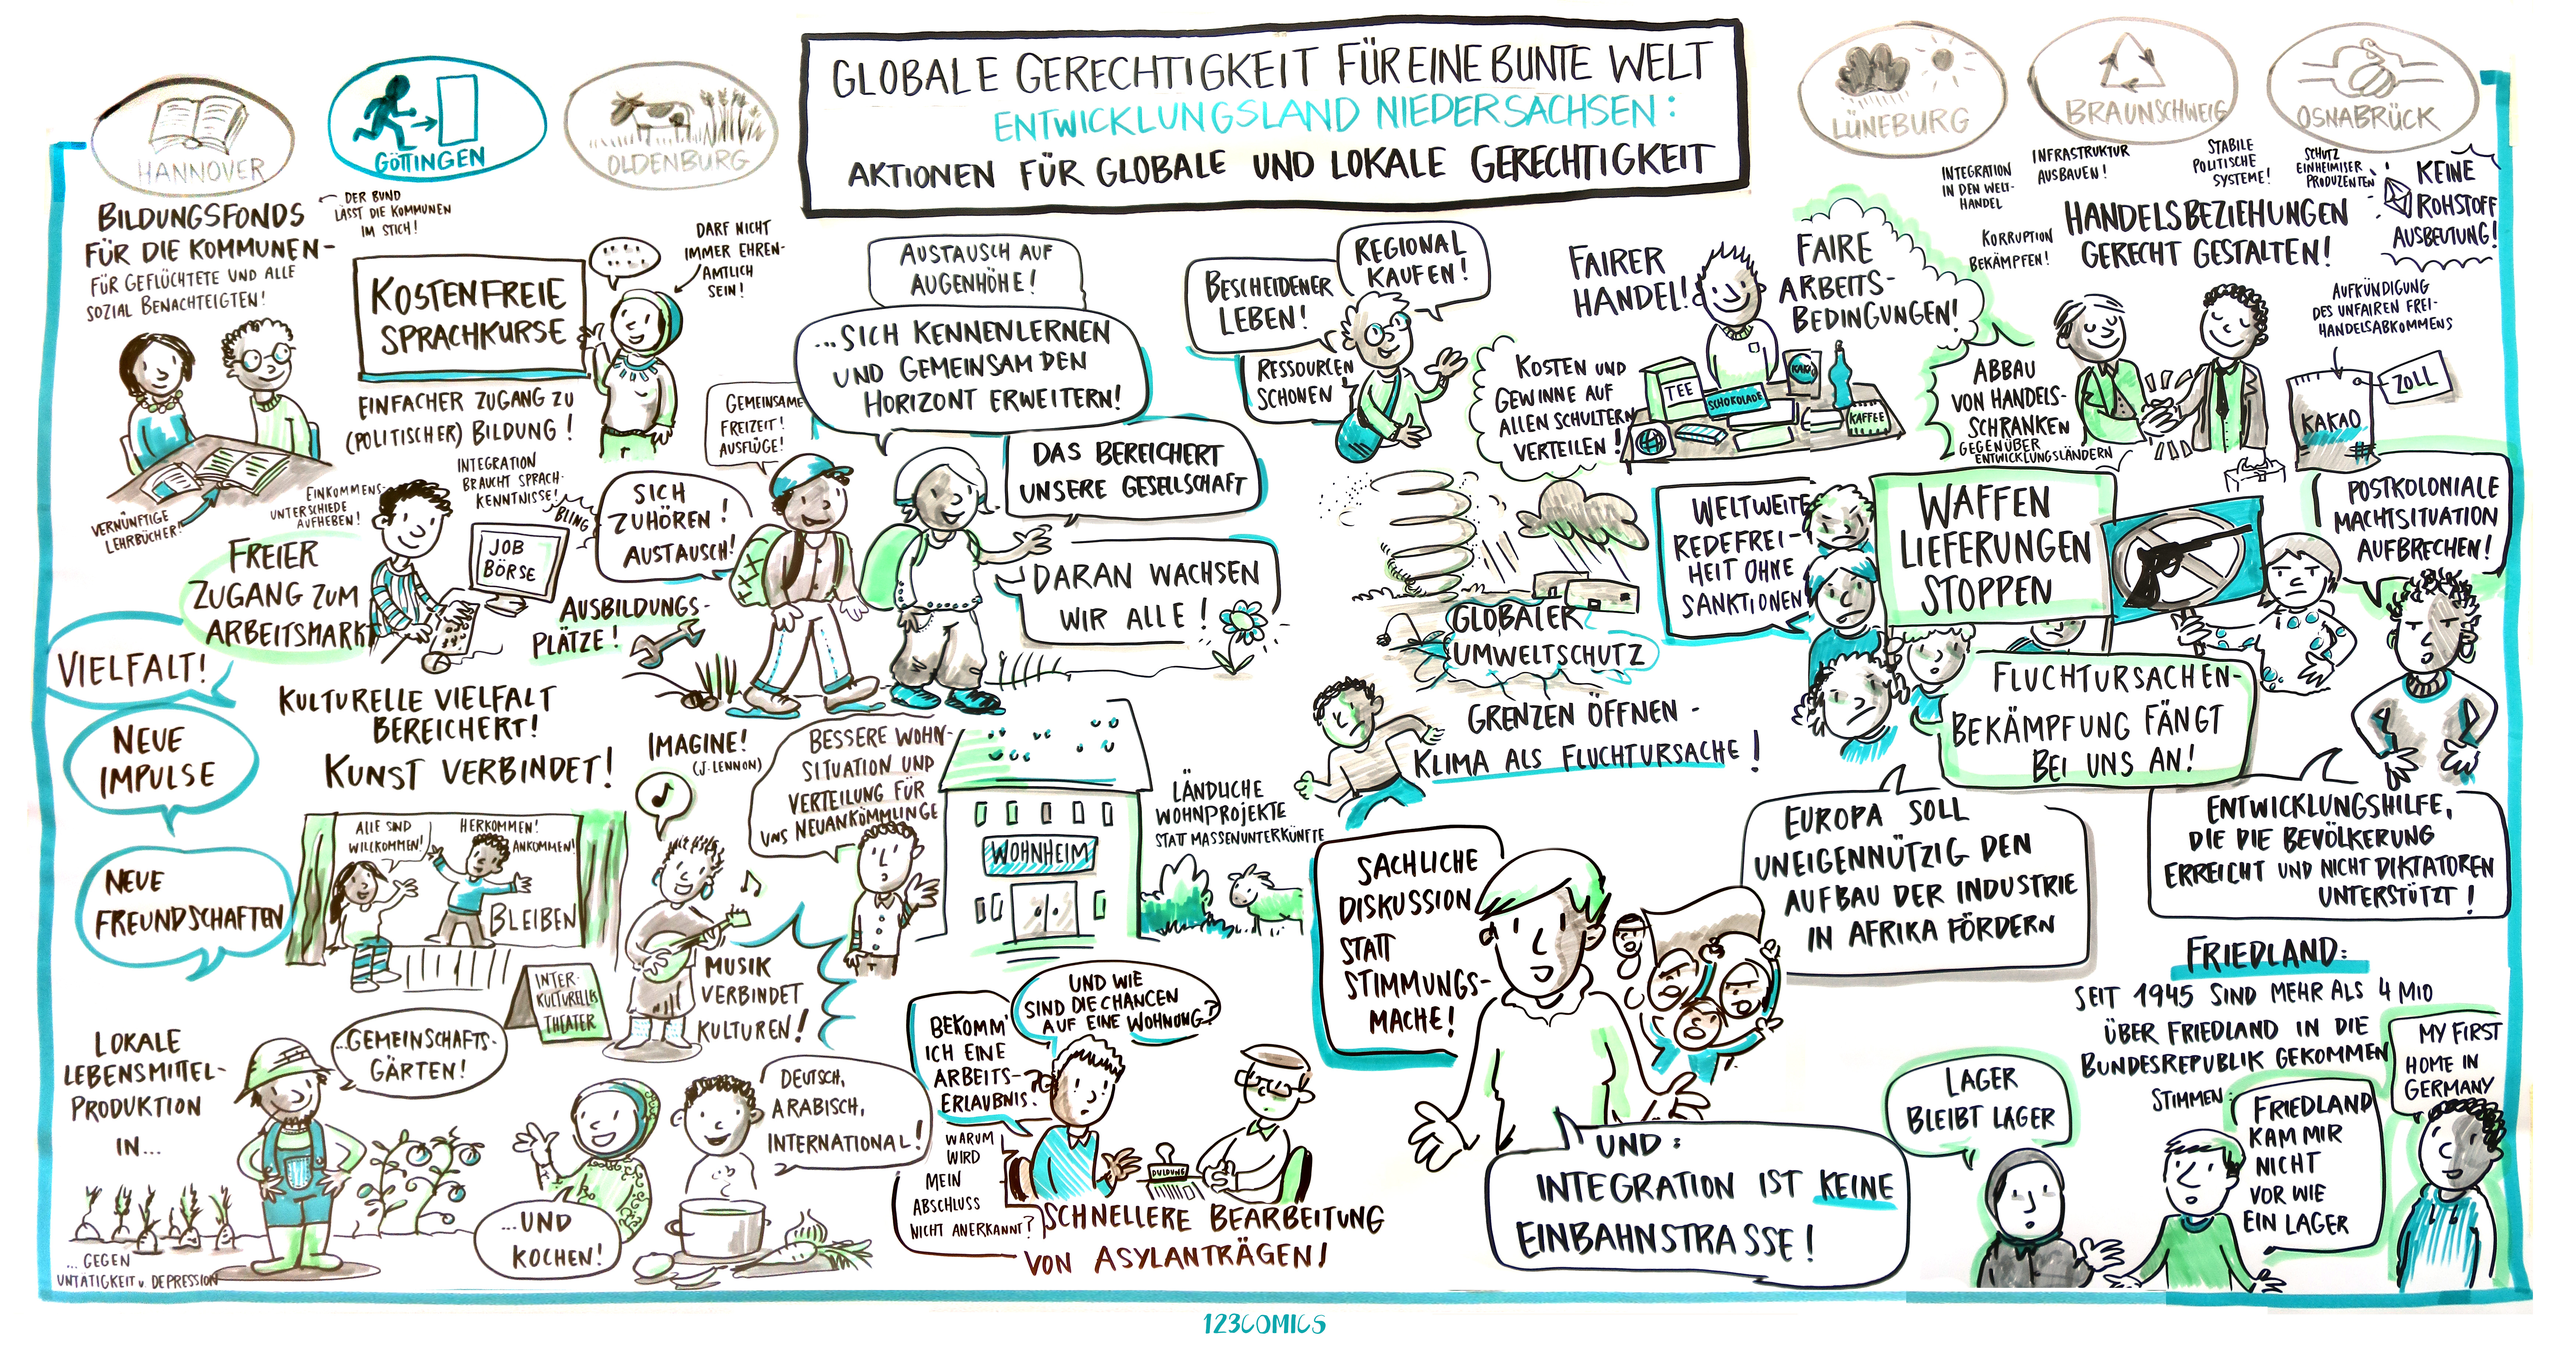 GLOBALE GERECHTIGKEIT FÜR EINE BUNTE WELT
ENTWICKLUNGSLAND NIEDERSACHSEN:
AKTIONEN FÜR GLOBALE UND LOKALE GERECHTIGKEIT
HANNOVER
GÖTTINGEN
OLDENBURG
LÜNEBURG
BRAUNSCHWEIG
OSNABRÜCK
BILDUNGSFONDS
FÜR DIE KOMMUNEN-
FÜR GEFLÜCHTETE UND ALLE
SOZIAL BENACHTEIGTEN!
DER BUND
LÄSST DIE KOMMUNEN
IM STICH!
KOSTENFREIE
SPRACHKURSE
DARF NICHT
IMMER EHREN-
AMTLICH
SEIN!
EINFACHER ZUGANG ZU
(POLITISCHER) BILDUNG!
INTEGRATION
BRAUCHT SPRACH-
KENNTNISSE!
VERNÜNFTIGE
LEHRBÜCHER!
EINKOMMENS-
UNTERSCHIEDE
AUFHEBEN!
FREIER
ZUGANG ZUM
ARBEITSMARKT
JOB
BÖRSE
BLING
AUSBILDUNGS-
PLÄTZE!
GEMEINSAME
FREIZEIT!
AUSFLÜGE!
SICH
ZUHÖREN!
AUSTAUSCH!
AUSTAUSCH AUF
AUGENHÖHE!
...SICH KENNENLERNEN
UND GEMEINSAM DEN
HORIZONT ERWEITERN!
DAS BEREICHERT
UNSERE GESELLSCHAFT
DARAN WACHSEN
WIR ALLE!
VIELFALT!
NEUE
IMPULSE
NEUE
FREUNDSCHAFTEN
KULTURELLE VIELFALT
BEREICHERT!
KUNST VERBINDET!
IMAGINE!
(J. LENNON)
ALLE SIND
WILLKOMMEN!
HERKOMMEN!
ANKOMMEN!
BLEIBEN
INTER-
KULTURELLES
THEATER
MUSIK
VERBINDET
KULTUREN!
BESSERE WOHN-
SITUATION UND
VERTEILUNG FÜR
UNS NEUANKÖMMLINGE
WOHNHEIM
LÄNDLICHE
WOHNPROJEKTE
STATT MASSENUNTERKÜNFTE
LOKALE
LEBENSMITTEL-
PRODUKTION
IN...
...GEMEINSCHAFTS-
GÄRTEN!
... GEGEN
UNTÄTIGKEIT U. DEPRESSION
...UND
KOCHEN!
DEUTSCH,
ARABISCH,
INTERNATIONAL!
BEKOMM'
ICH EINE
ARBEITS-
ERLAUBNIS?
UND WIE
SIND DIE CHANCEN
AUF EINE WOHNUNG?
WARUM
WIRD
MEIN
ABSCHLUSS
NICHT ANERKANNT?
DULDUNG
SCHNELLERE BEARBEITUNG
VON ASYLANTRÄGEN!
BESCHEIDENER
LEBEN!
REGIONAL
KAUFEN!
RESSOURCEN
SCHONEN
FAIRER
HANDEL!
FAIRE
ARBEITS-
BEDINGUNGEN!
KOSTEN UND
GEWINNE AUF
ALLEN SCHULTERN
VERTEILEN!
TEE
SCHOKOLADE
KAKAO
KAFFEE
INTEGRATION
IN DEN WELT-
HANDEL
INFRASTRUKTUR
AUSBAUEN!
STABILE
POLITISCHE
SYSTEME!
SCHUTZ
EINHEIMISER
PRODUZENTEN
KEINE
ROHSTOFF
AUSBEUTUNG!
KORRUPTION
BEKÄMPFEN!
HANDELSBEZIEHUNGEN
GERECHT GESTALTEN!
AUFKÜNDIGUNG
DES UNFAIREN FREI-
HANDELSABKOMMENS
ZOLL
KAKAO
ABBAU
VON HANDELS-
SCHRANKEN
GEGENÜBER
ENTWICKLUNGSLÄNDERN
WELTWEITE
REDEFREI-
HEIT OHNE
SANKTIONEN
WAFFEN
LIEFERUNGEN
STOPPEN
POSTKOLONIALE
MACHTSITUATION
AUFBRECHEN!
GLOBALER
UMWELTSCHUTZ
GRENZEN ÖFFNEN -
KLIMA ALS FLUCHTURSACHE!
FLUCHTURSACHEN-
BEKÄMPFUNG FÄNGT
BEI UNS AN!
EUROPA SOLL
UNEIGENNÜTZIG DEN
AUFBAU DER INDUSTRIE
IN AFRIKA FÖRDERN
ENTWICKLUNGSHILFE,
DIE DIE BEVÖLKERUNG
ERREICHT UND NICHT DIKTATOREN
UNTERSTÜTZT!
SACHLICHE
DISKUSSION
STATT
STIMMUNGS-
MACHE!
UND:
INTEGRATION IST KEINE
EINBAHNSTRASSE!
FRIEDLAND:
SEIT 1945 SIND MEHR ALS 4 MIO
ÜBER FRIEDLAND IN DIE
BUNDESREPUBLIK GEKOMMEN
STIMMEN:
LAGER
BLEIBT LAGER
FRIEDLAND
KAM MIR
NICHT
VOR WIE
EIN LAGER
MY FIRST
HOME IN
GERMANY
123COMICS